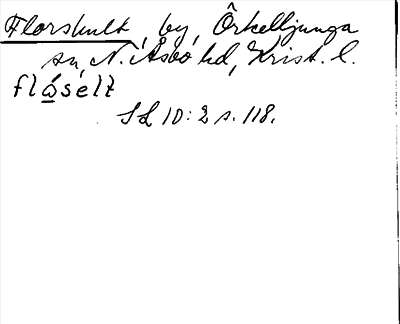 Florshult, by, Örkelljunga
sn, N. Åsbo hd, Krist. l.
flåsélt
SL 10:2 s. 118.